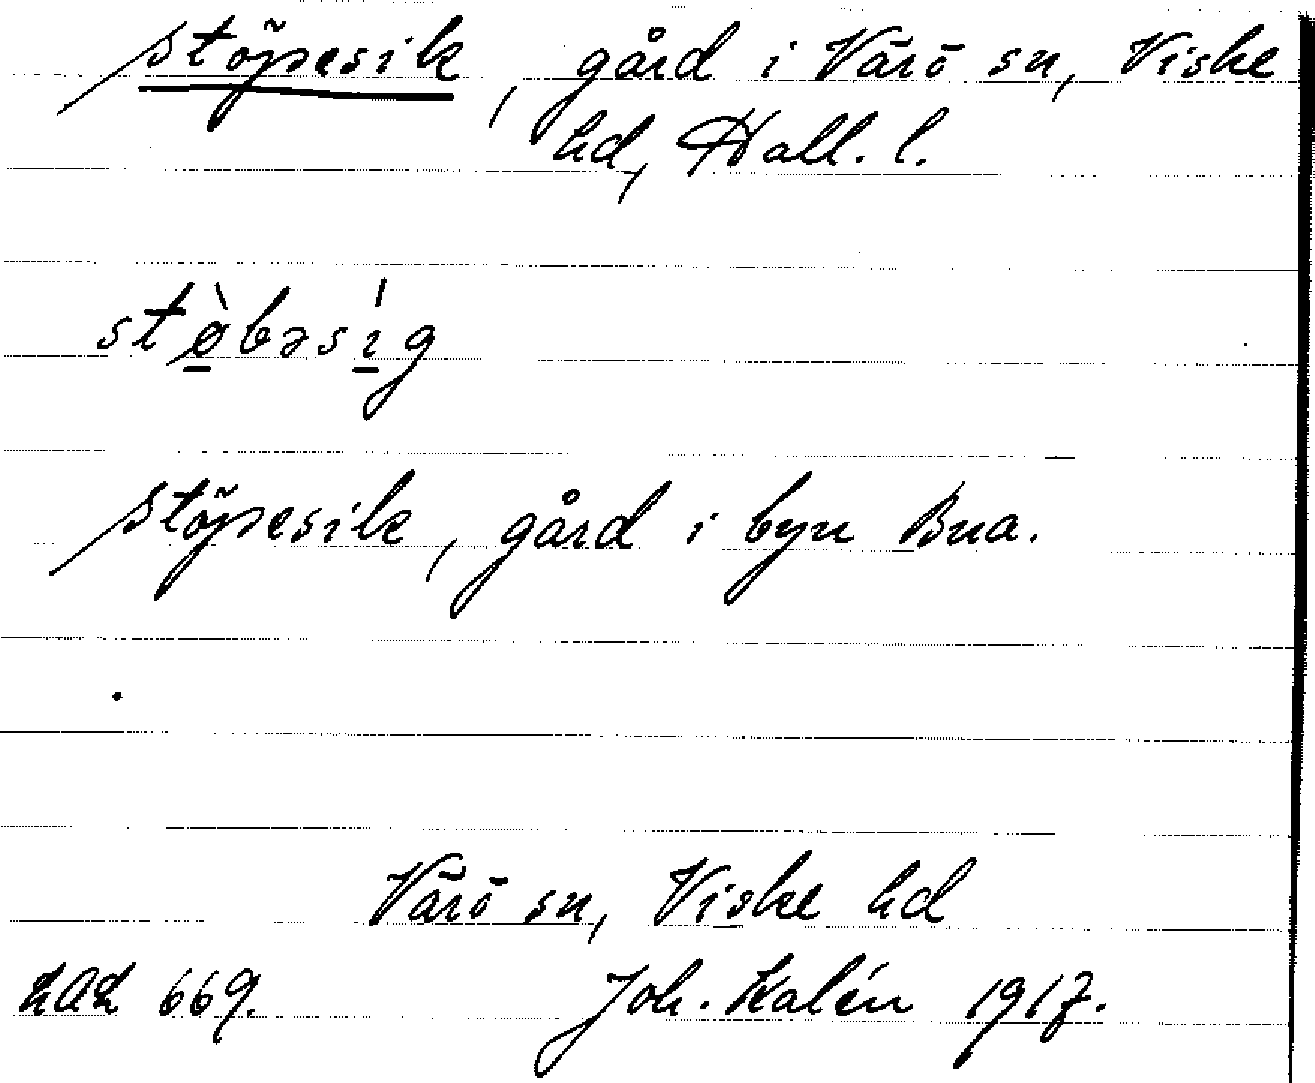 Stöpesik, gård i Värö sn, Viske
hd, Hall. l.
stø̠̀bəsı̠́g
Stöpesik, gård i byn Bua.
Värö sn, Viske hd
LAL 669. Joh. Kalén 1917.